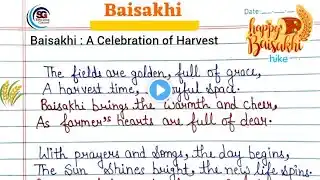 SG
Baisakhi
Date
Baisakhi : A Celebration of Harvest
happy
Baisakhi
hike
The fields are golden, full of grace,
A harvest time, space.
Baisakhi brings the warmth and cheer,
As farmer's hearts are full of dear.
With prayers and songs, the day begins,
The Sun shines bright, the new life spins.